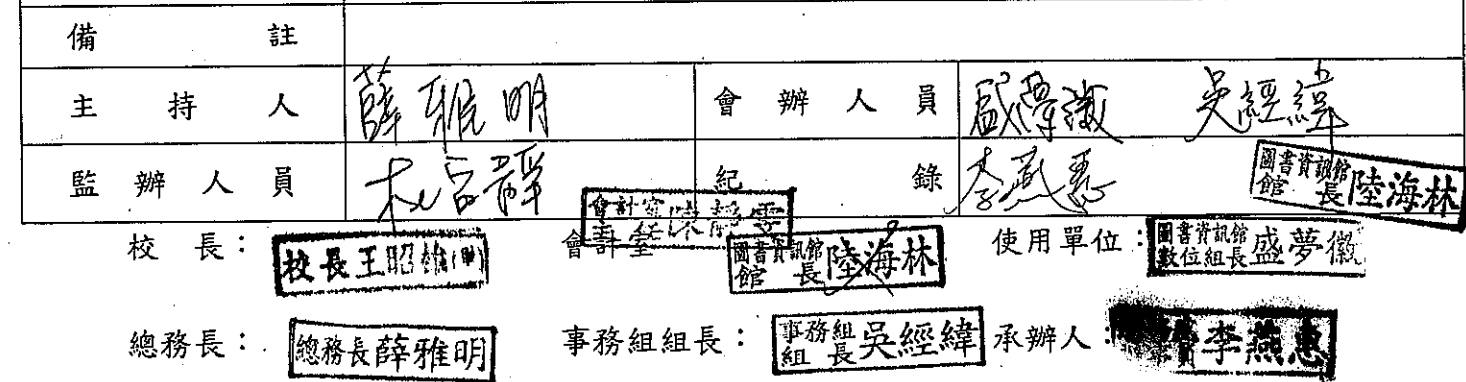 備註
主持人 薛雅明 會辦人員 盛夢徽 吳經緯
監辦人員 紀錄 李燕惠
圖書資訊館館長陸海林
校長： 校長王昭雄(甲) 會計室 會計室主任陳靜雯 圖書資訊館館長陸海林 使用單位： 圖書資訊館數位組長盛夢徽
總務長： 總務長薛雅明 事務組組長： 事務組組長吳經緯 承辦人： 李燕惠